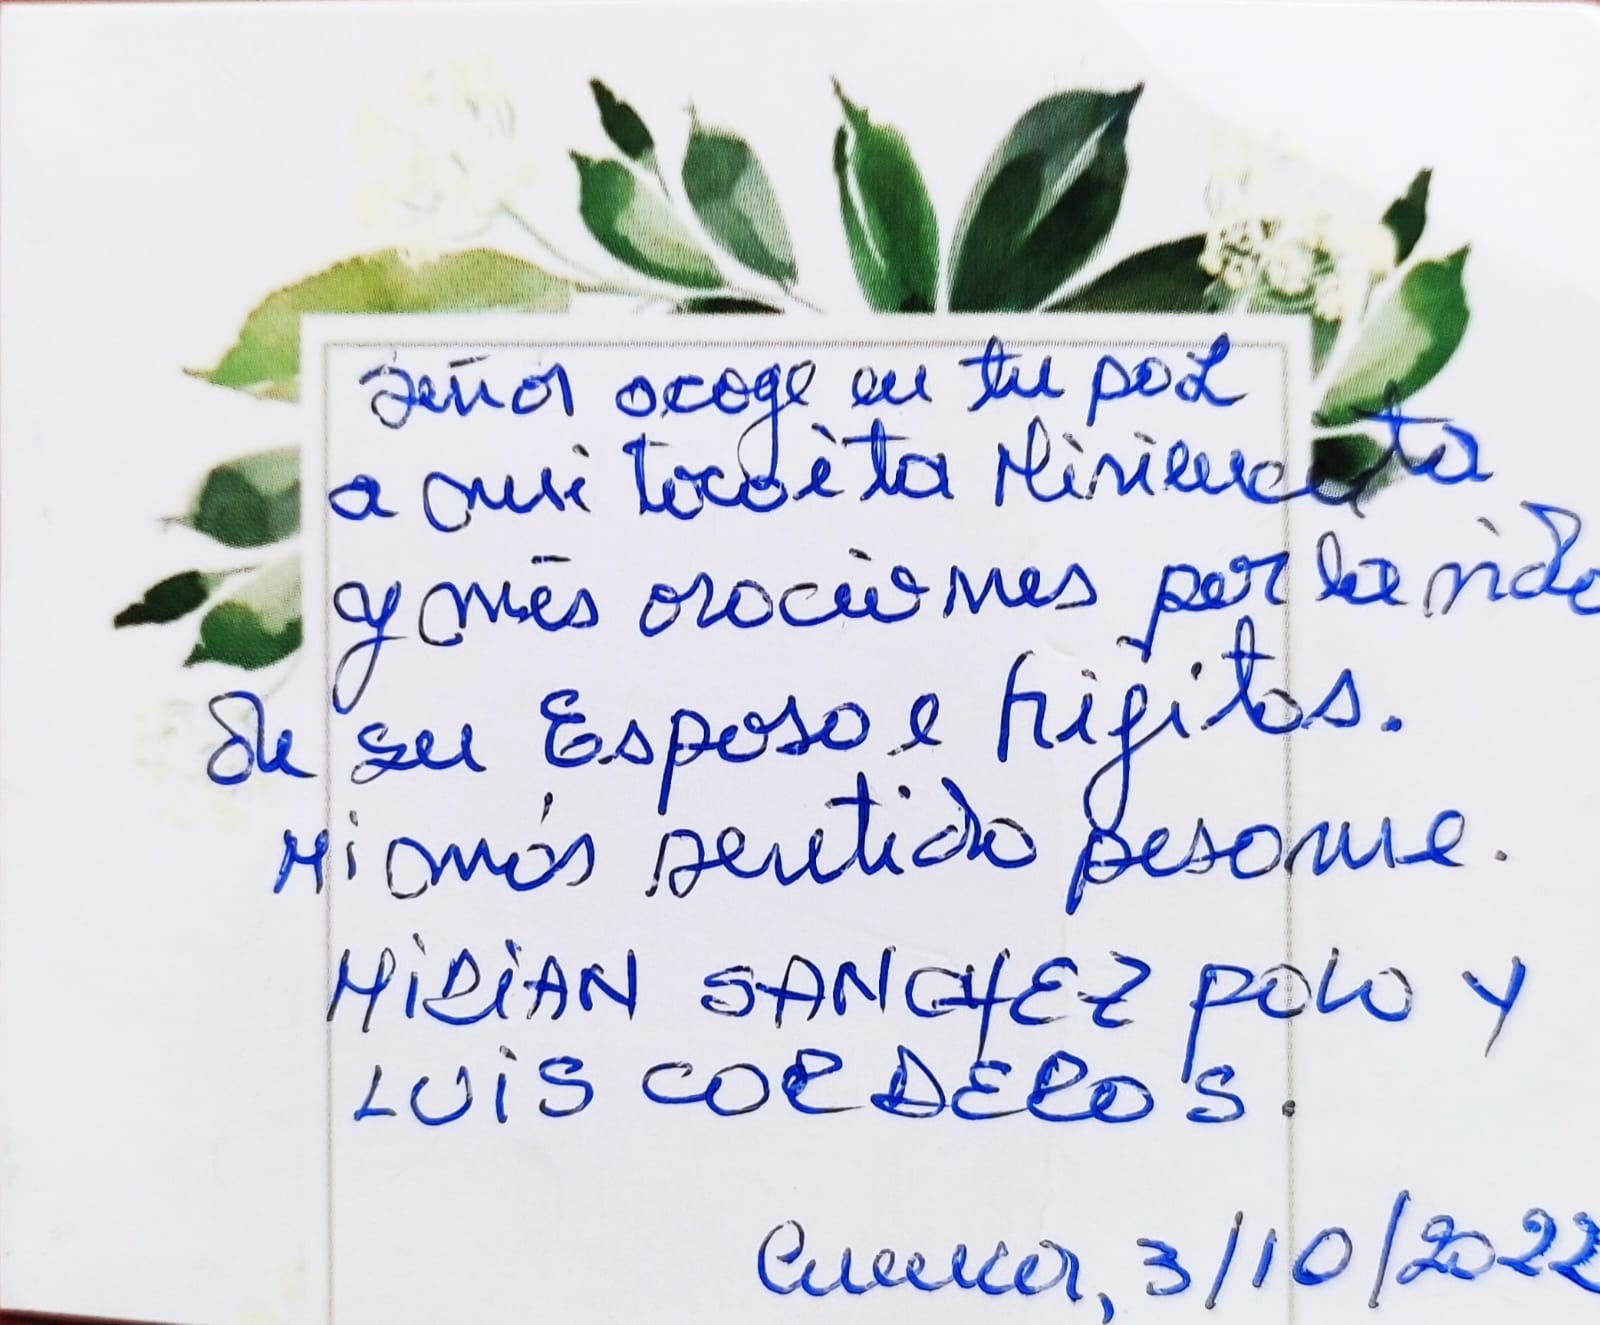 Señor acoge en tu paz
a mi tocaita Miriencita
y mis oraciones por la vida
de su Esposo e hijitos.
Mi más sentido pesame.
MIRIAN SANCHEZ POLO Y
LUIS CORDERO S.
Cuenca, 3/10/2022